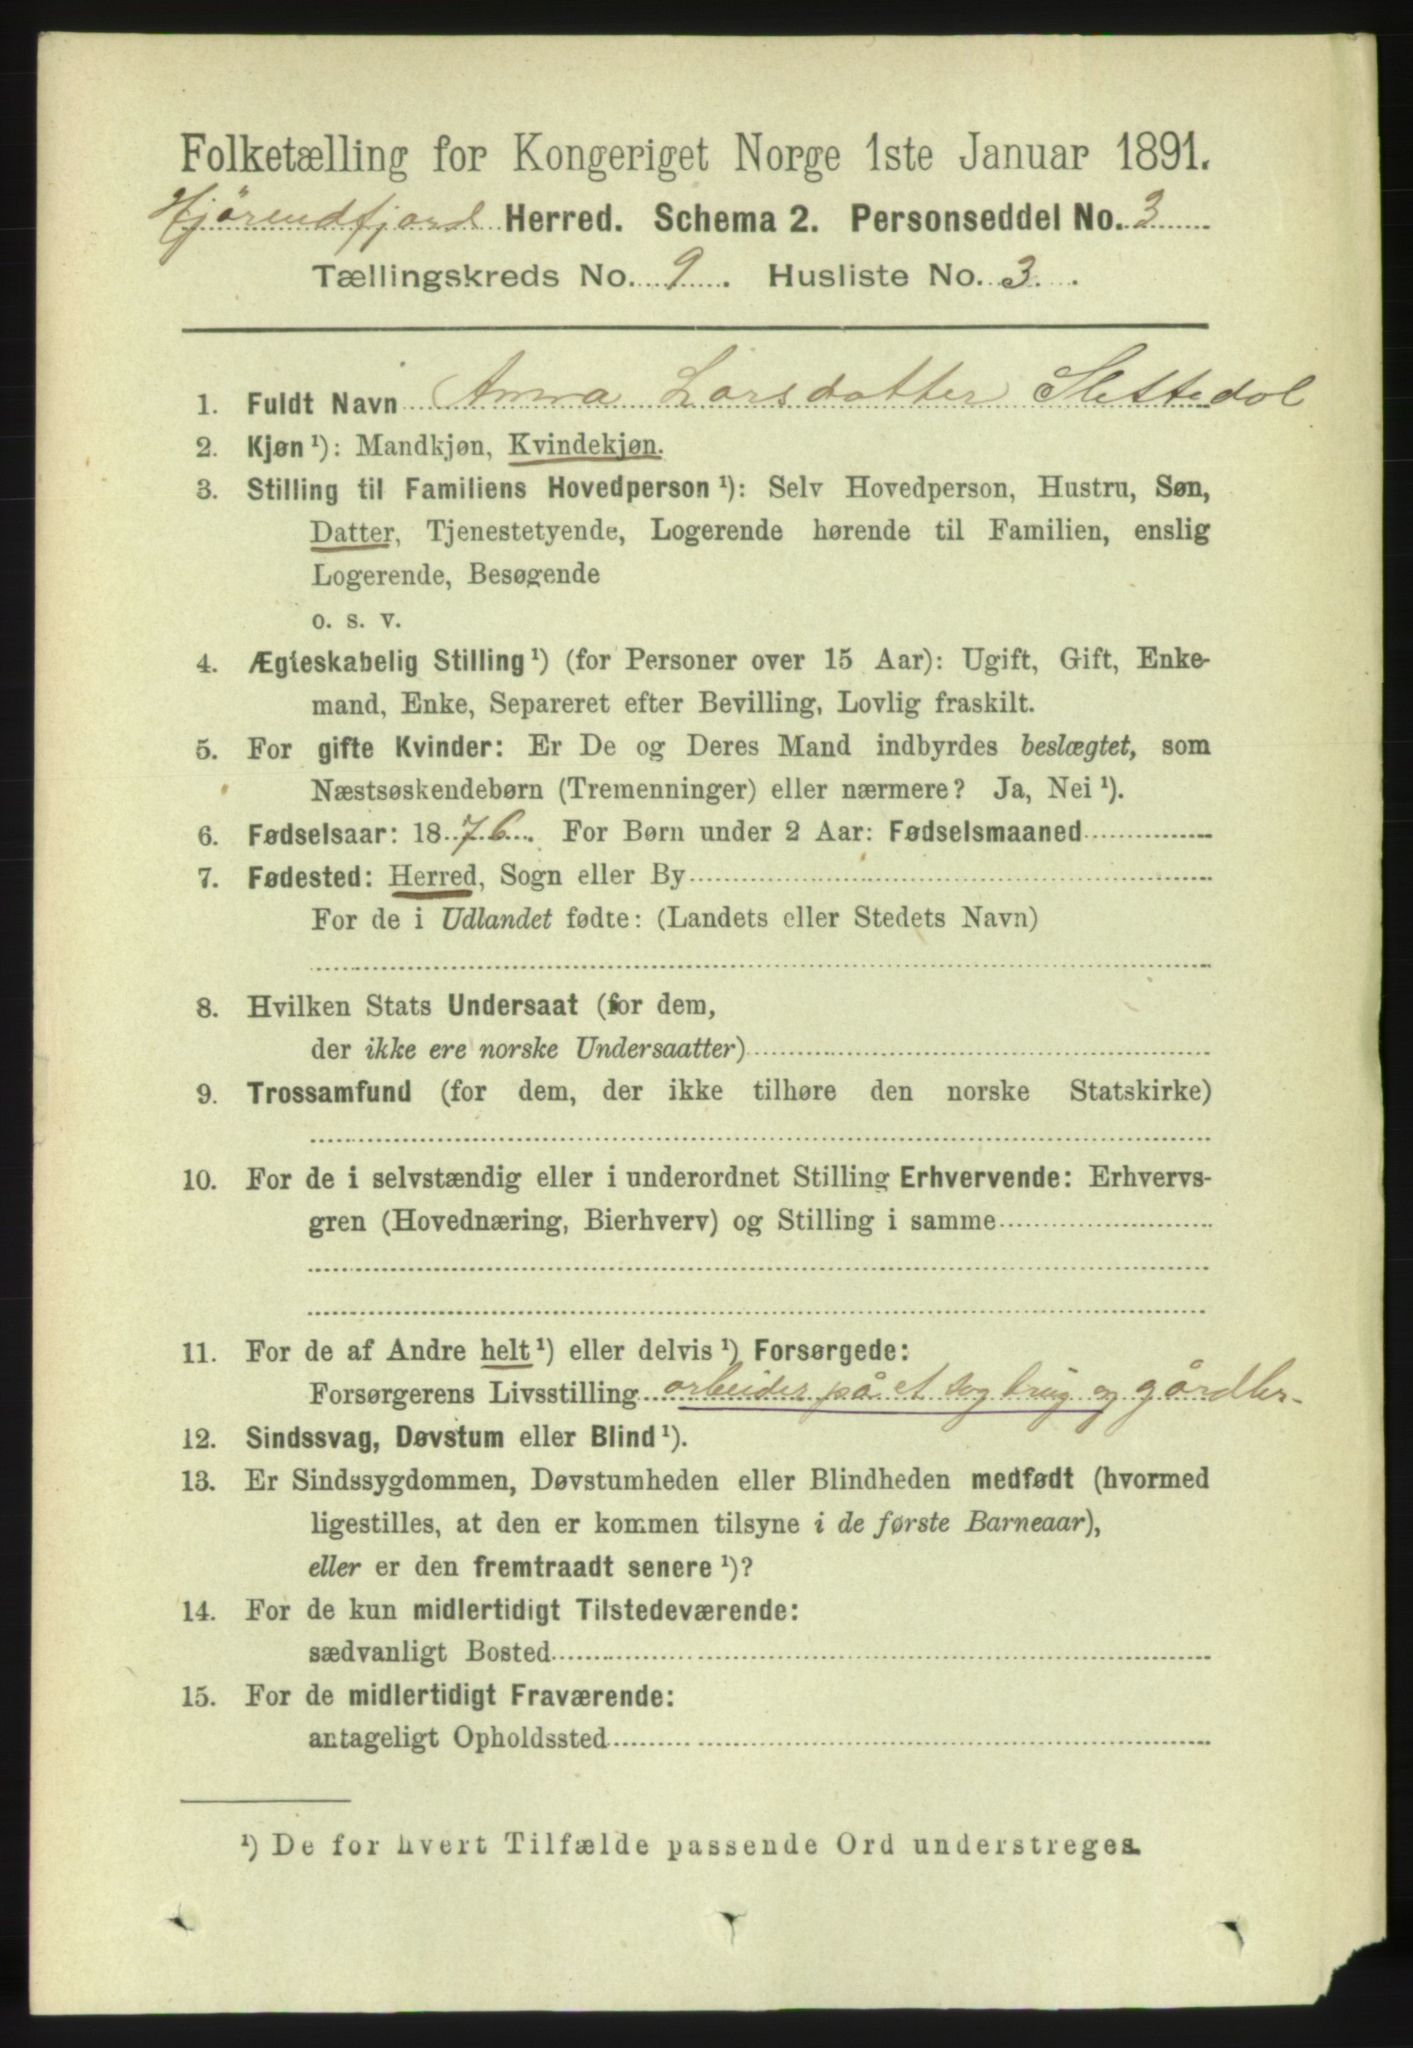 Folketælling for Kongeriget Norge 1ste Januar 1891.
Hjörendfjord Herred. Schema 2. Personseddel No. 3
Tællingskreds No. 9. Husliste No. 3.
1. Fuldt Navn Anna Larsdatter Slettedal
2. Kjøn ¹): Mandkjøn, Kvindekjøn.
3. Stilling til Familiens Hovedperson ¹): Selv Hovedperson, Hustru, Søn,
Datter, Tjenestetyende, Logerende hørende til Familien, enslig
Logerende, Besøgende
o. s. v.
4. Ægteskabelig Stilling ¹) (for Personer over 15 Aar): Ugift, Gift, Enke-
mand, Enke, Separeret efter Bevilling, Lovlig fraskilt.
5. For gifte Kvinder: Er De og Deres Mand indbyrdes beslægtet, som
Næstsøskendebørn (Tremenninger) eller nærmere? Ja, Nei ¹).
6. Fødselsaar: 1876. For Børn under 2 Aar: Fødselsmaaned
7. Fødested: Herred, Sogn eller By
For de i Udlandet fødte: (Landets eller Stedets Navn)
8. Hvilken Stats Undersaat (for dem,
der ikke ere norske Undersaatter)
9. Trossamfund (for dem, der ikke tilhøre den norske Statskirke)
10. For de i selvstændig eller i underordnet Stilling Erhvervende: Erhvervs-
gren (Hovednæring, Bierhverv) og Stilling i samme
11. For de af Andre helt ¹) eller delvis ¹) Forsørgede:
Forsørgerens Livsstilling arbeider på et sagbrug og gårdbr-
12. Sindssvag, Døvstum eller Blind ¹).
13. Er Sindssygdommen, Døvstumheden eller Blindheden medfødt (hvormed
ligestilles, at den er kommen tilsyne i de første Barneaar),
eller er den fremtraadt senere ¹)?
14. For de kun midlertidigt Tilstedeværende:
sædvanligt Bosted
15. For de midlertidigt Fraværende:
antageligt Opholdssted
¹) De for hvert Tilfælde passende Ord understreges.